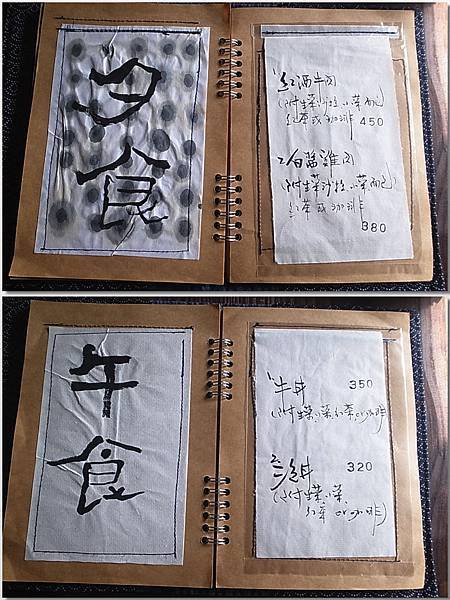 夕食
1.紅酒牛肉
(附生菜沙拉,小菜,麵包)
紅茶或咖啡 450
2.白醬雞肉
(附生菜沙拉,小菜,麵包)
紅茶或咖啡
380
午食
1.牛丼 350
(附生菜,小菜,紅茶or咖啡)
2. 丼 320
(附生菜,小菜,
紅茶or咖啡)